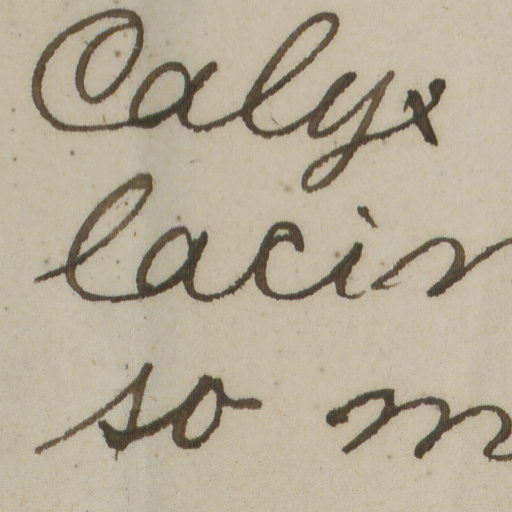 Calyx
lacin
so m